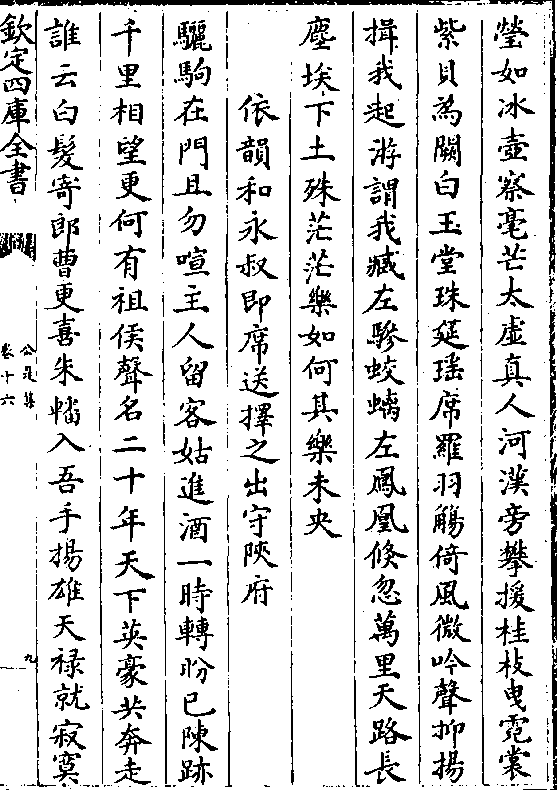 瑩如冰壺察毫芒太虛真人河漢旁攀援桂枝曳霓裳
紫貝為闕白玉堂珠延瑤席羅羽觴倚風微吟聲抑揚
揖我起游謂我臧左驂蛟螭左鳳凰倏忽萬里天路長
塵埃下土殊茫茫樂如何其樂未央
依韻和永叔即席送擇之出守陜府
驪駒在門且勿喧主人留客姑進酒一時轉盻已陳跡
千里相望更何有祖侯聲名二十年天下英豪共奔走
誰云白髮寄郎曹更喜朱轓入吾手揚雄天禄就寂寞
欽定四庫全書
公是集
卷十六
九